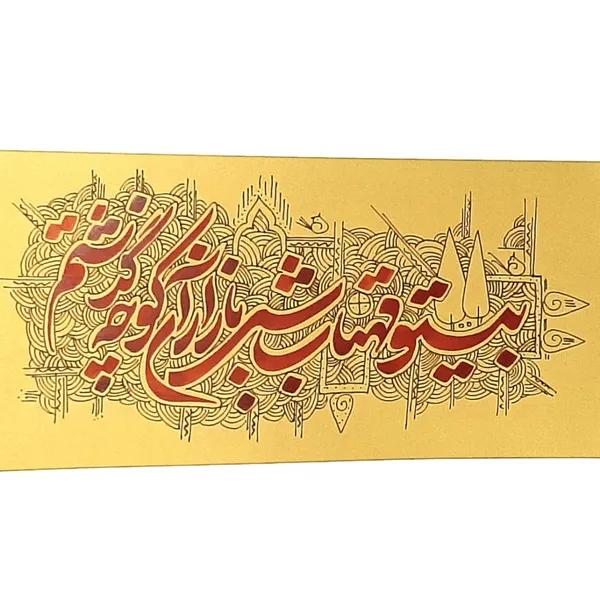 بیتو مهتاب شبی باز از آن کوچه گذشتم